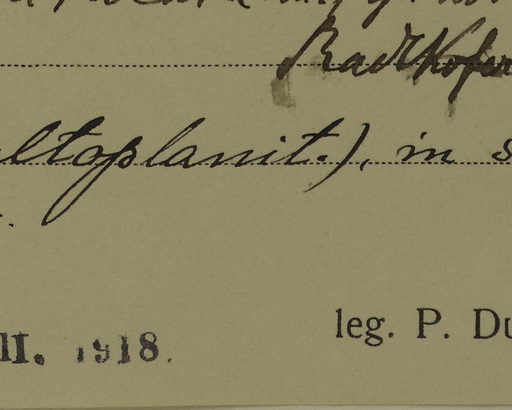 Radlkofer
altoplanit.), in s
II. 1918.
leg. P. Du